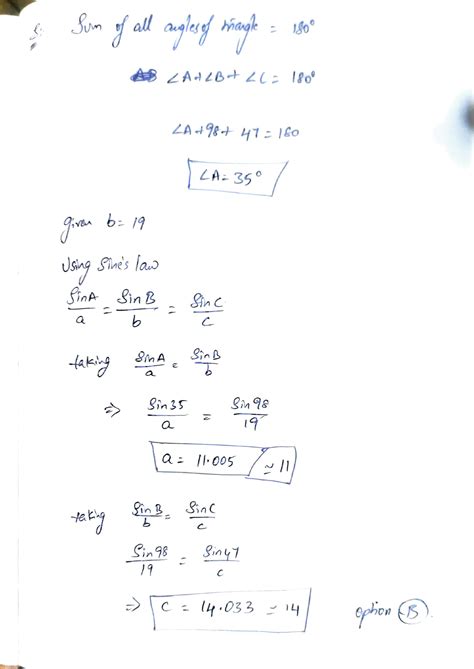 Sum of all angles of triangle = 180°
∠A+∠B+ ∠C = 180°
∠A+98+ 47 = 180
∠A = 35°
given b = 19
Using Sine's law
SinA/a = SinB/b = SinC/c
taking SinA/a = SinB/b
⇒ Sin35/a = Sin98/19
a = 11.005 ≃ 11
taking SinB/b = SinC/c
Sin98/19 = Sin47/c
⇒ c = 14.033 ≃ 14 option (B).